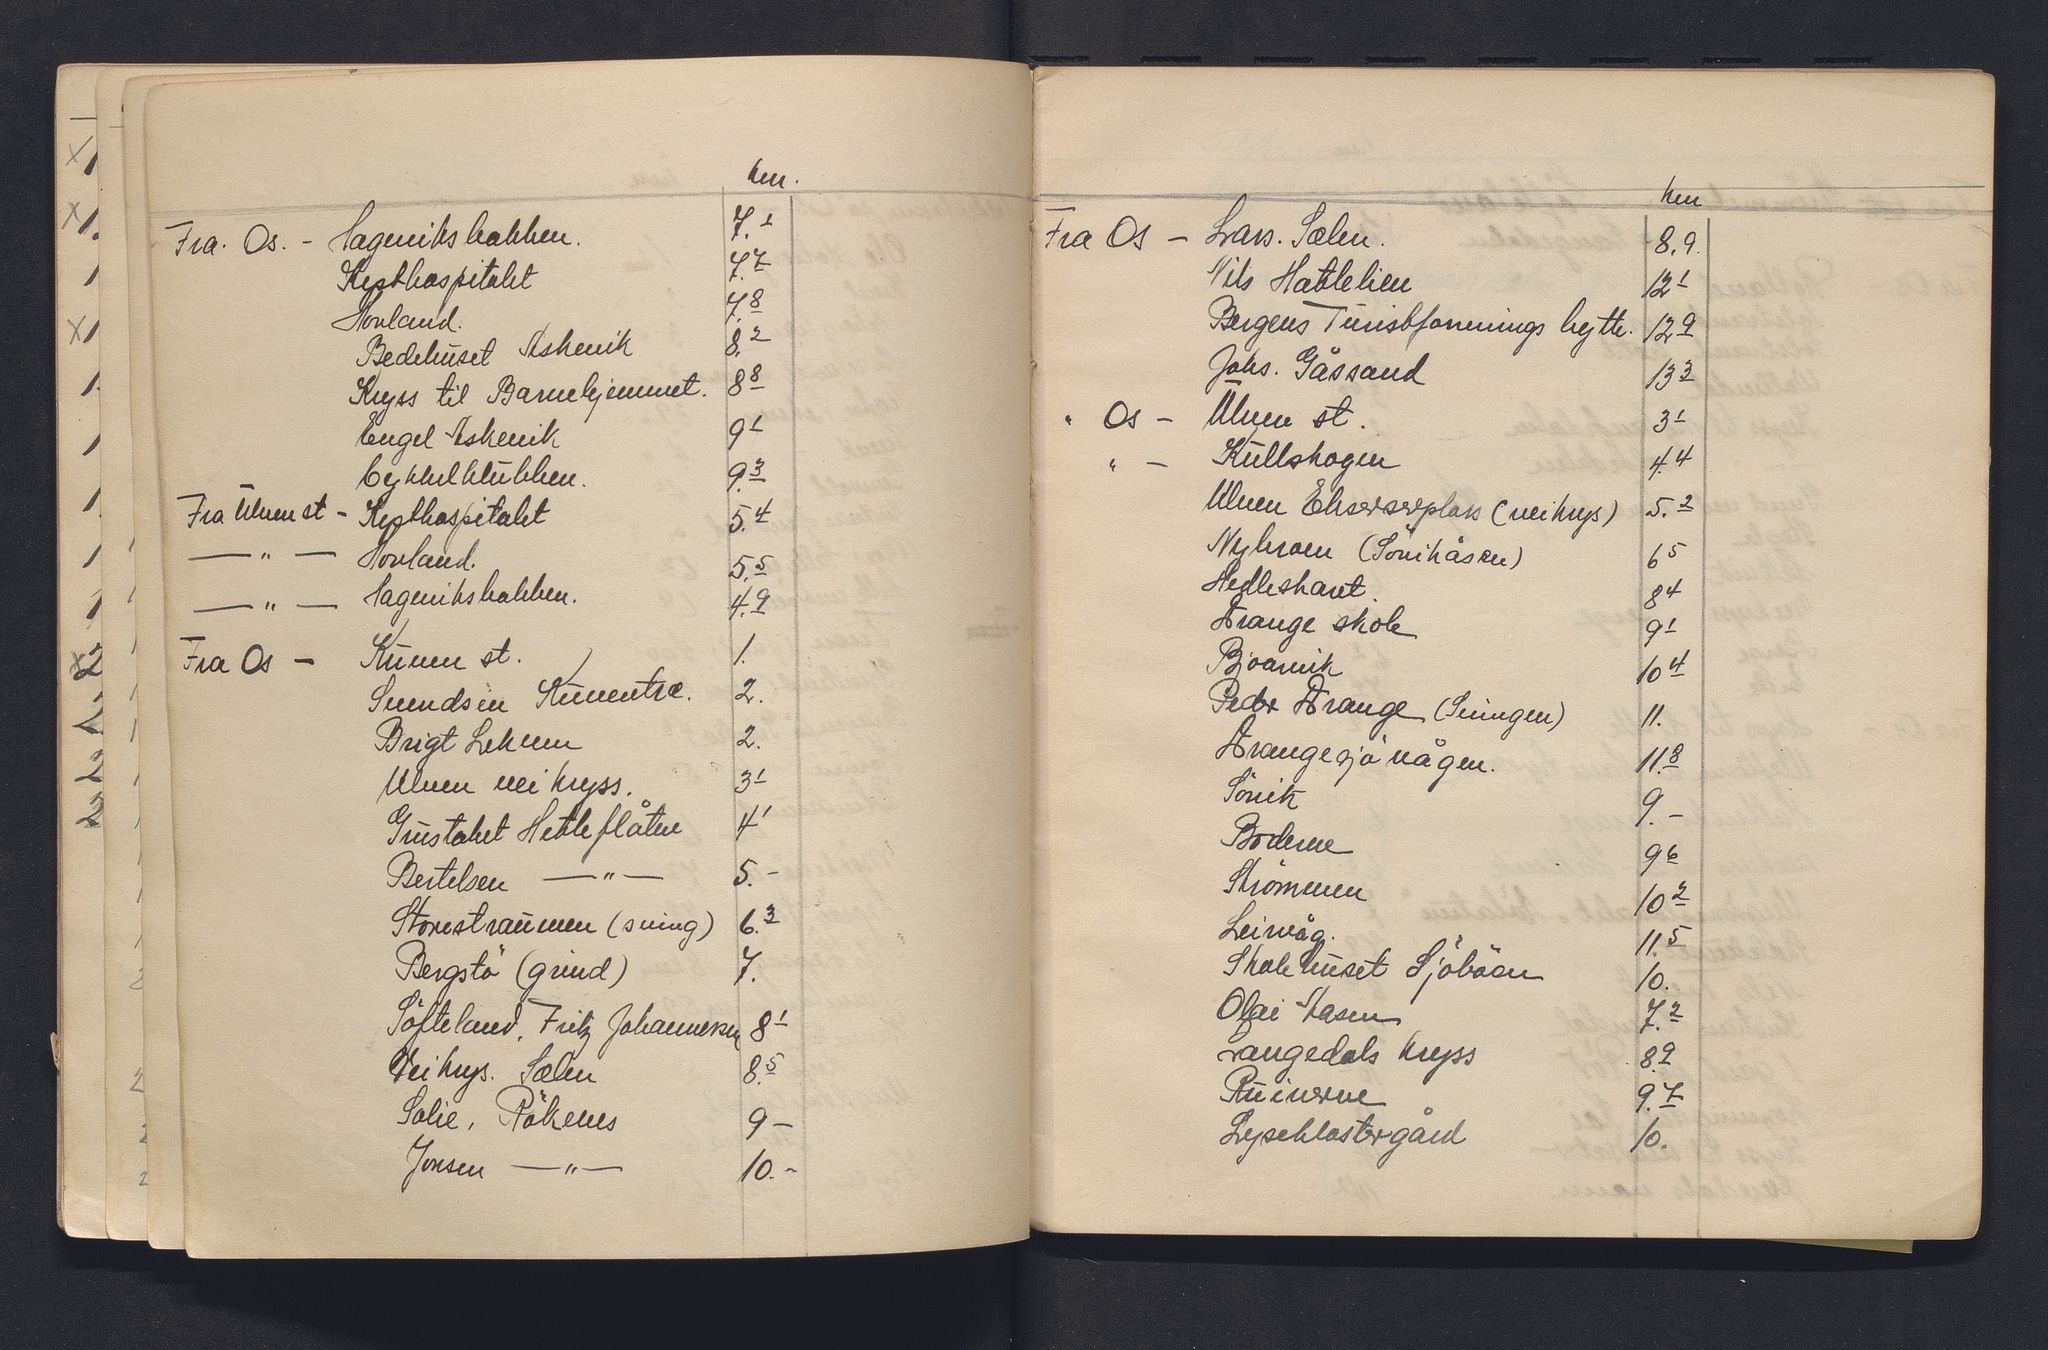 km.
Fra. Os. - Hageviksbakken. 7.1
Kysthospitalet 7.7
Hovland. 7.8
Bedehuset Askvik 8.2
Kryss til Barnehjemmet. 8 8
Engel Askvik 9 1
Cykkelklubben. 9.3
Fra Ulven st - Kysthospitalet 5.4
— " — Hovland. 5.5
— " — Hageviksbakken. 4.9
Fra Os - Kuven st. 1.
Svendsen Kuventræ. 2.
Brigt Lekven 2.
Ulven veikryss. 3 1
Grustaket Hetleflåten 4 1
Bertelsen — " — 5.-
Storestraumen (sving) 6.3
Bergstö (grind) 7.
Söfteland, Fritz Johannessen 8 1
Veikrys. Sælen 8.5
Solie, Røkenes 9 -
Jonsen — " — 10.-
km
Fra Os - Lars. Sælen. 8.9.
Nils Hatlelien 12 1
Bergens Turistforenings hytte. 12 9
Johs. Gåssand 13 3
" Os - Ulven st. 3 1
" - Kullskogen 4.4
Ulven Ekserserplass (veikrys) 5.2
Nybroen (Sövikåsen) 6 5
Hedleskaret. 8 4
Drange skole 9 1
Bjoarvik 10 4
Peder Drange (Svingen) 11.
Drangesjövågen. 11.8
Sövik 9.-
Boderne 9 6
Strömmen 10 2
Leirvåg. 11.5
Skolehuset Sjöbøen 10.
Olai Aasen 7.2
Langedals kryss 8 9
Ruinerne 9.7
Lyseklostergård 10.